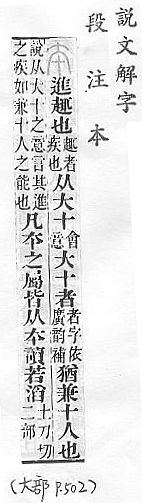 說文解字
段注本
夲進趣也趣者疾也从大十會意大十者者字依廣韵補猶兼十人也
說从大十之意言其進之疾如兼十人之能也凡夲之屬皆从夲讀若滔土刀切二部
(大部 P.502)